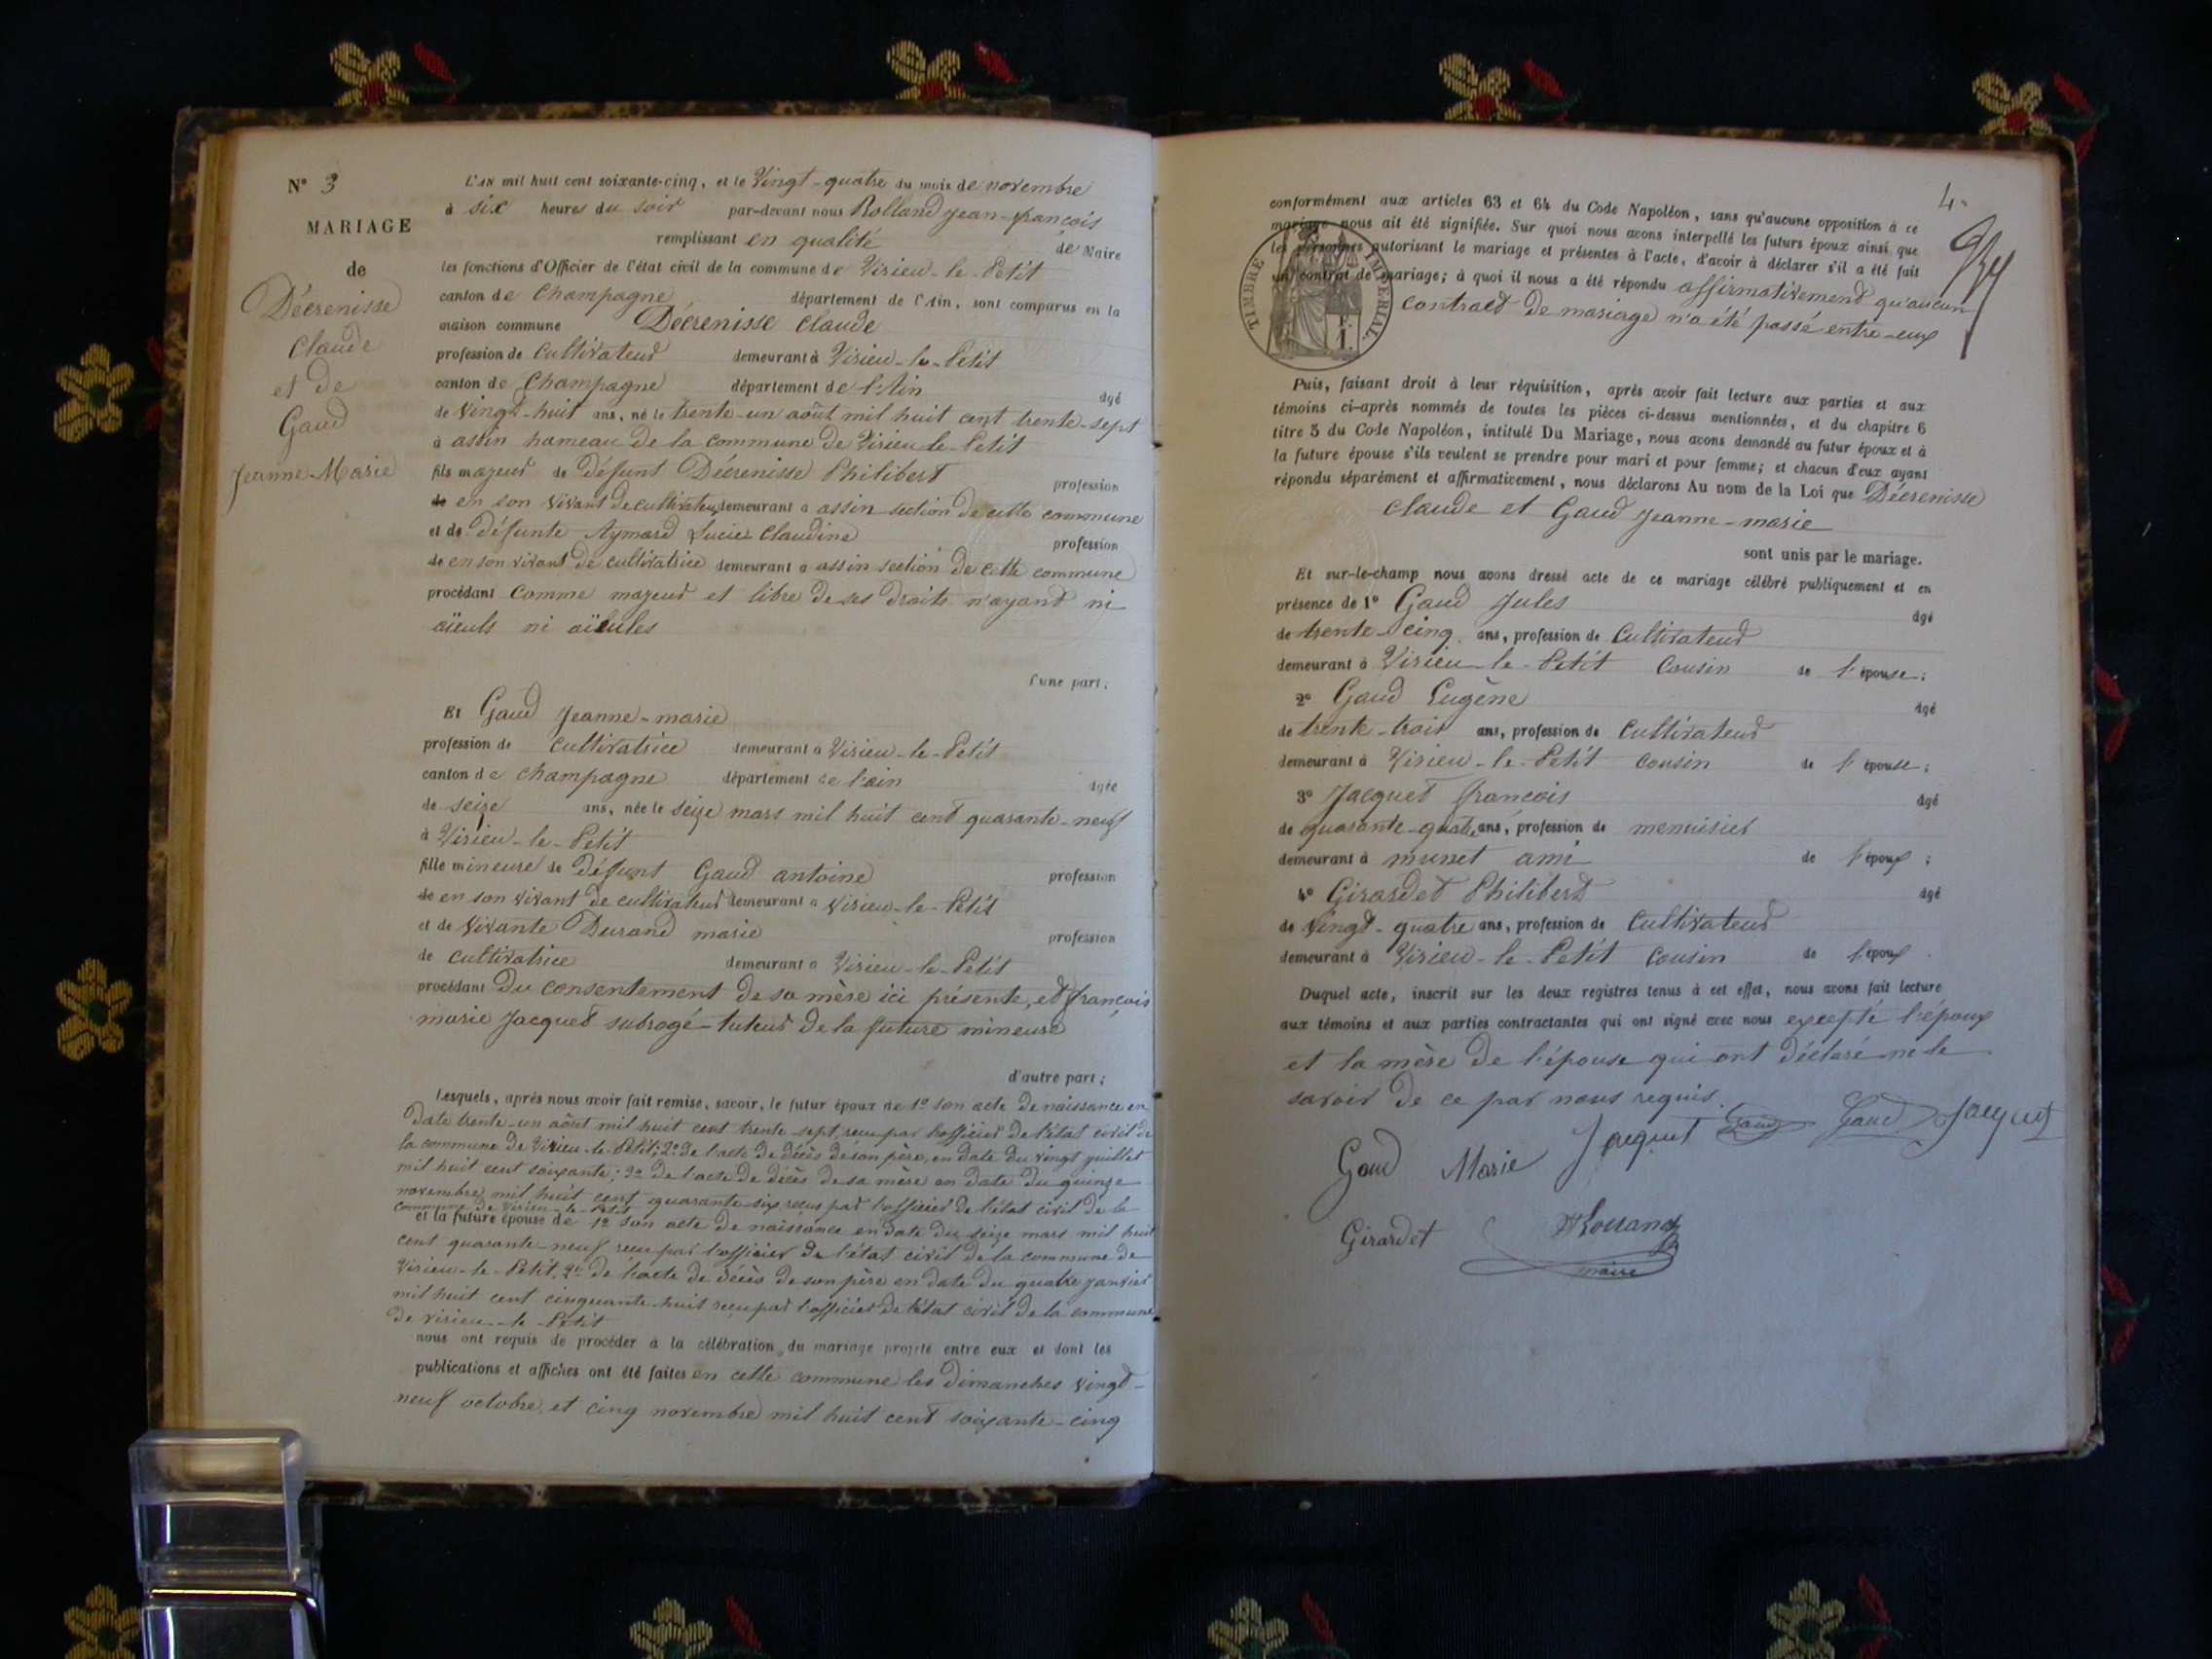 N° 3
MARIAGE
de
Décrenisse
Claude
et de
Gaud
Jeanne-Marie
L'AN mil huit cent soixante-cinq, et le Vingt-quatre du mois de novembre
à six heures du soir par-devant nous Rolland jean-françois
remplissant en qualité de Maire
les fonctions d'Officier de l'état civil de la commune de Virieu-le-Petit
canton de Champagne département de l'Ain, sont comparus en la
maison commune Décrenisse Claude
profession de Cultivateur demeurant à Virieu-le-Petit
canton de Champagne département de l'Ain âgé
de Vingt-huit ans, né le trente-un août mil huit cent trente-sept
à assin hameau de la commune de Virieu-le-Petit
fils majeur de Défunt Décrenisse Philibert profession
de en son vivant de cultivateur demeurant à assin section de cette commune
et de Défunte Aymard Lucie Claudine profession
de en son vivant de cultivatrice demeurant à assin section de cette commune
procédant comme majeur et libre de ses droits n'ayant ni
aïeuls ni aïeules
d'une part;
Et Gaud Jeanne-marie
profession de cultivatrice demeurant à Virieu-le-Petit
canton de champagne département de l'ain âgée
de seize ans, née le seize mars mil huit cent quarante-neuf
à Virieu-le-Petit
fille mineure de Défunt Gaud antoine profession
de en son vivant de cultivateur demeurant à Virieu-le-Petit
et de Vivante Durand marie profession
de cultivatrice demeurant à Virieu-le-Petit
procédant Du consentement de sa mère ici présente, et françois
marie Jacquet subrogé-tuteur de la future mineure
d'autre part;
Lesquels, après nous avoir fait remise, savoir, le futur époux de 1° son acte de naissance en
date trente-un août mil huit cent trente-sept, reçu par l'officier de l'état civil de
la commune de Virieu-le-Petit; 2° de l'acte de décès de son père, en date du vingt juillet
mil huit cent soixante; 3° de l'acte de décès de sa mère en date du quinze
novembre mil huit cent quarante-six reçus par l'officier de l'état civil de la
commune de Virieu-le-Petit
et la future épouse de 1° son acte de naissance en date du seize mars mil huit
cent quarante-neuf reçu par l'officier de l'état civil de la commune de
Virieu-le-Petit, 2° de l'acte de décès de son père en date du quatre janvier
mil huit cent cinquante-huit reçu par l'officier de l'état civil de la commune
de virieu-le-Petit
nous ont requis de procéder à la célébration du mariage projeté entre eux et dont les
publications et affiches ont été faites en cette commune les dimanches vingt-
neuf octobre et cinq novembre mil huit cent soixante-cinq
4.
conformément aux articles 63 et 64 du Code Napoléon, sans qu'aucune opposition à ce
mariage nous ait été signifiée. Sur quoi nous avons interpellé les futurs époux ainsi que
les personnes autorisant le mariage et présentes à l'acte, d'avoir à déclarer s'il a été fait
un contrat de mariage; à quoi il nous a été répondu affirmativement qu'aucun
contract de mariage n'a été passé entre-eux
TIMBRE IMPÉRIAL.
1 F.
Puis, faisant droit à leur réquisition, après avoir fait lecture aux parties et aux
témoins ci-après nommés de toutes les pièces ci-dessus mentionnées, et du chapitre 6
titre 5 du Code Napoléon, intitulé Du Mariage, nous avons demandé au futur époux et à
la future épouse s'ils veulent se prendre pour mari et pour femme; et chacun d'eux ayant
répondu séparément et affirmativement, nous déclarons Au nom de la Loi que Décrenisse
claude et Gaud Jeanne-marie
sont unis par le mariage.
Et sur-le-champ nous avons dressé acte de ce mariage célébré publiquement et en
présence de 1° Gaud Jules âgé
de trente-cinq ans, profession de Cultivateur
demeurant à Virieu-le-Petit Cousin de l'épouse;
2° Gaud Eugène âgé
de trente-trois ans, profession de Cultivateur
demeurant à Virieu-le-Petit cousin de l'épouse;
3° Jacquet françois âgé
de quarante-quatre ans, profession de menuisier
demeurant à munet ami de l'époux;
4° Girardet Philibert âgé
de Vingt-quatre ans, profession de Cultivateur
demeurant à Virieu-le-Petit Cousin de l'époux
Duquel acte, inscrit sur les deux registres tenus à cet effet, nous avons fait lecture
aux témoins et aux parties contractantes qui ont signé avec nous excepté l'époux
et la mère de l'épouse qui ont déclaré ne le
savoir de ce par nous requis.
Gaud Marie Jacquet Gaud Gaud Jacquet
Girardet Rolland
maire